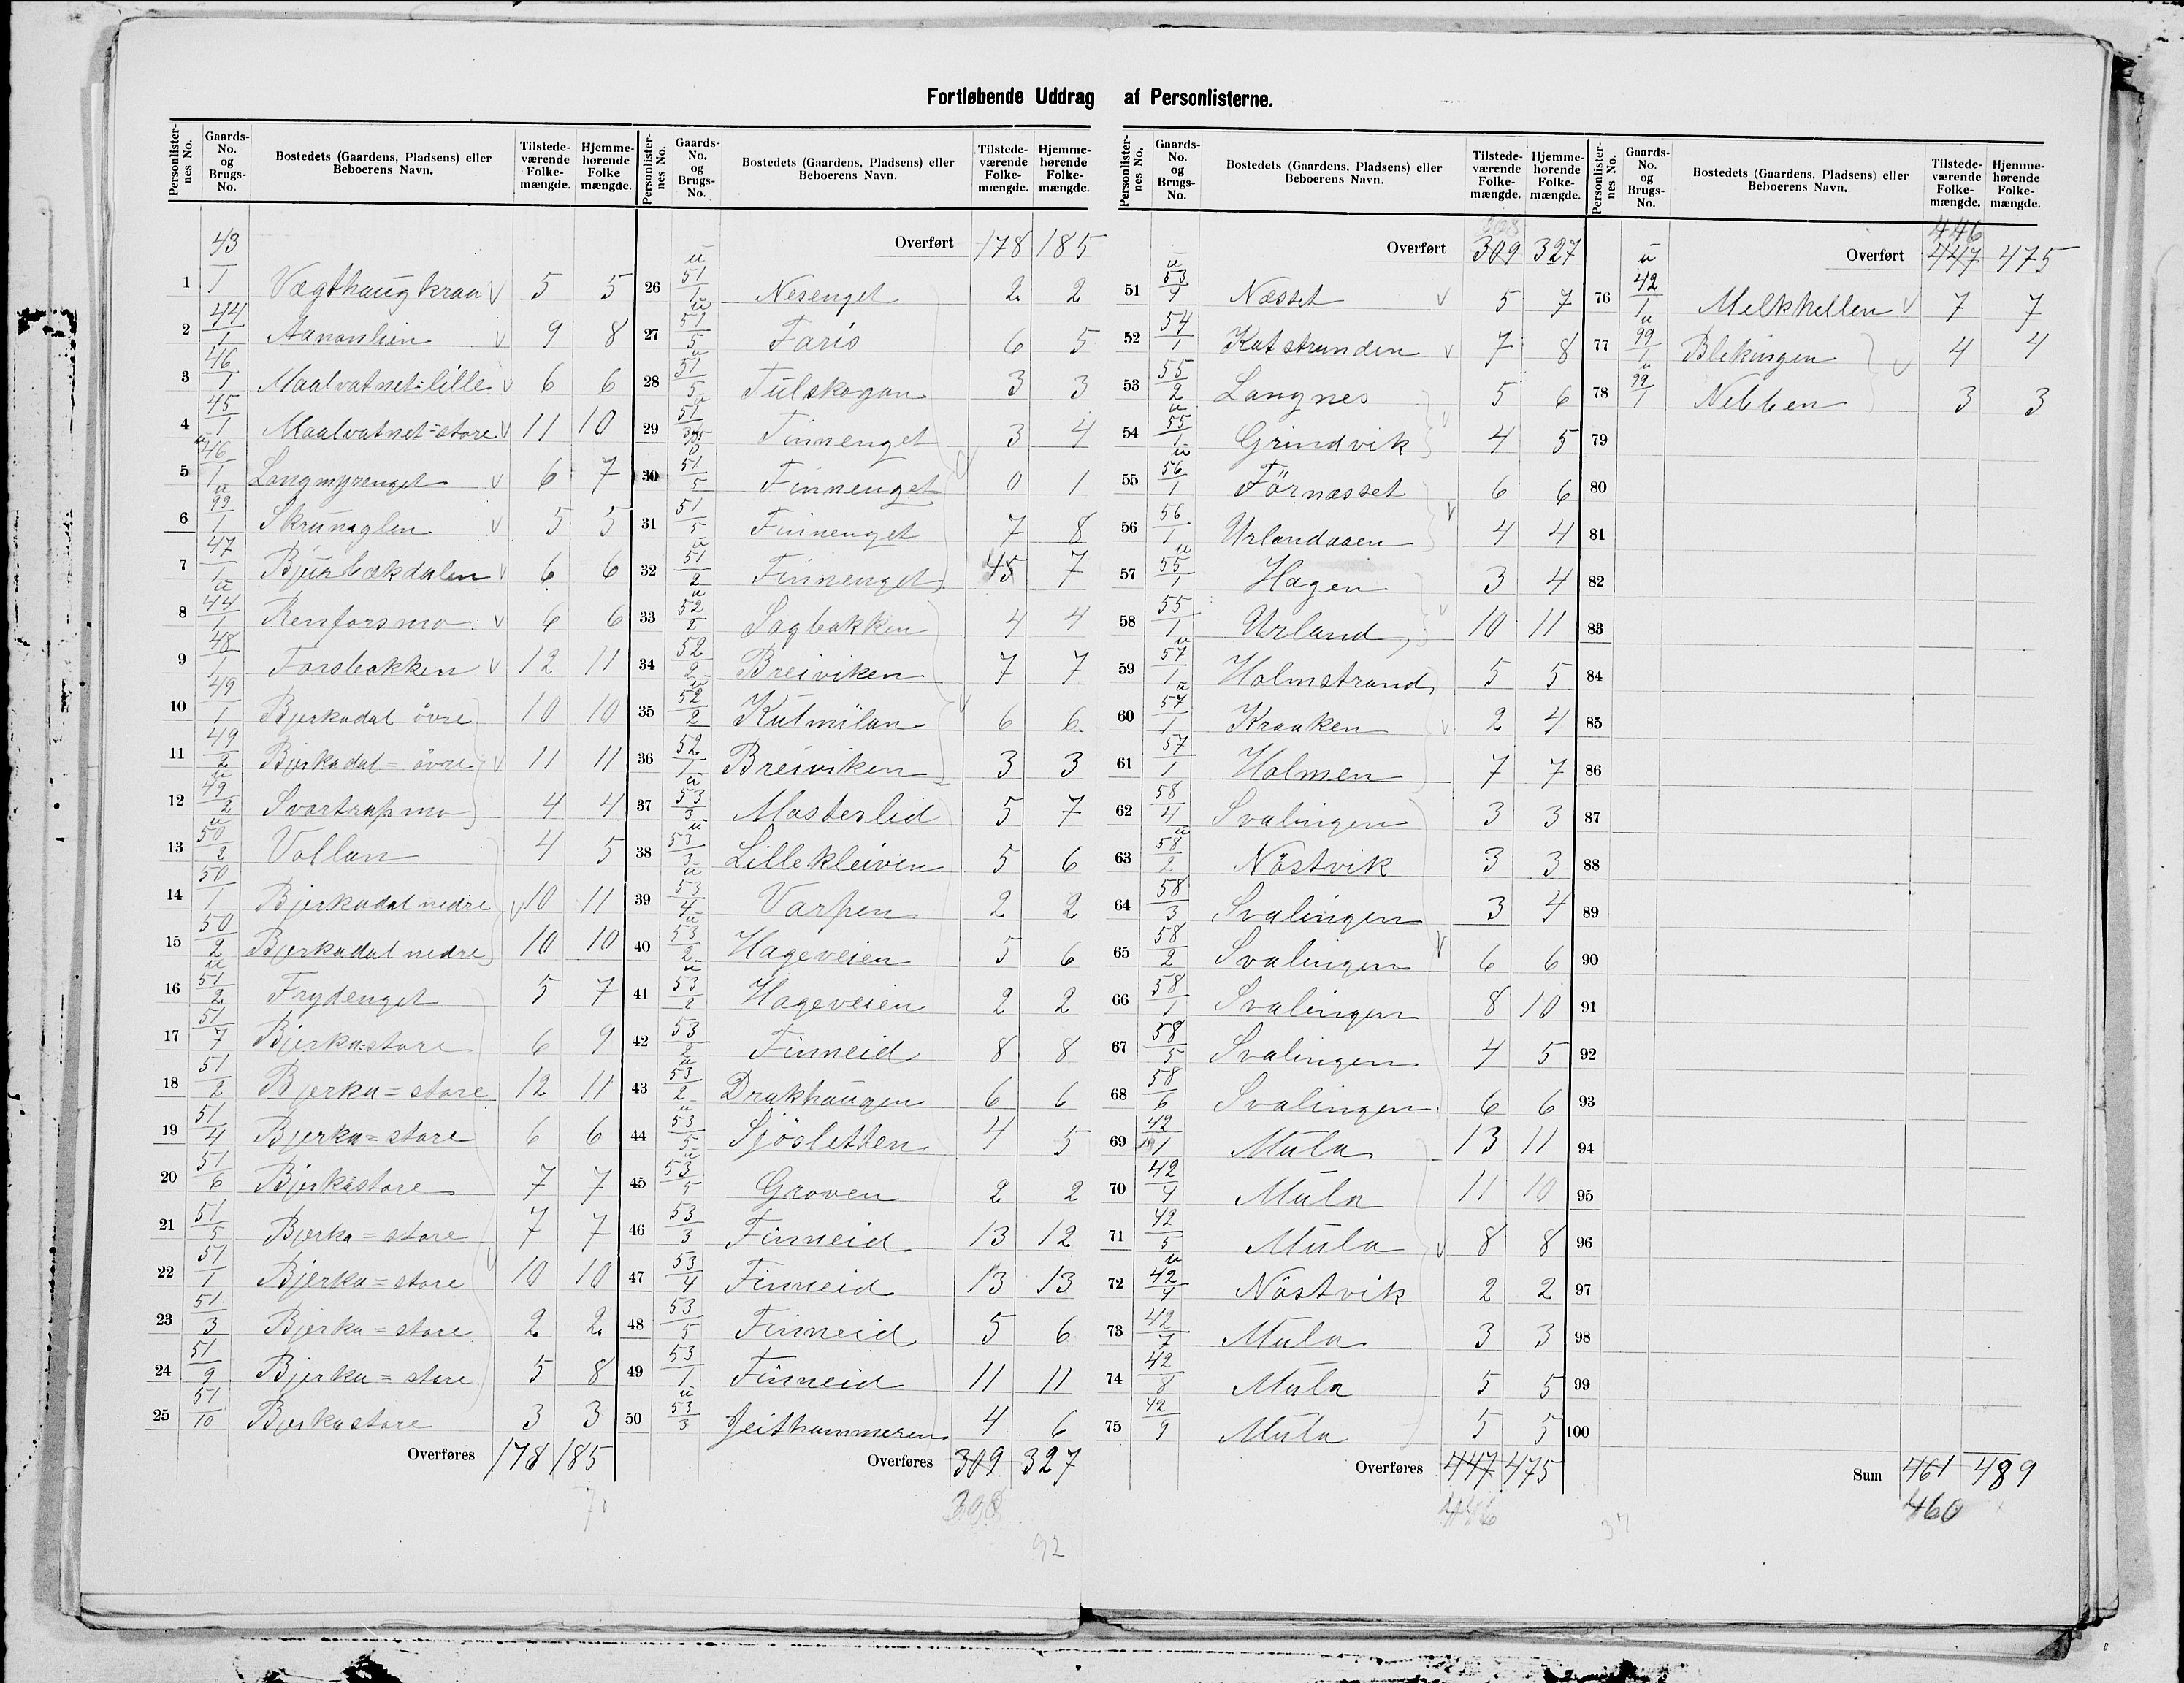 Fortløbende Uddrag af Personlisterne.
Personlister-nes No. | Gaards-No. og Brugs-No. | Bostedets (Gaardens, Pladsens) eller Beboerens Navn. | Tilstede-værende Folke-mængde. | Hjemme-hørende Folke mængde.
1 43/1 Vægthaugkraa v 5 5
2 44/1 Aanonlien v 9 8
3 46/1 Maalvatnet=lille v 6 6
4 45/1 Maalvatnet=store v 11 10
5 u 46/1 Langmyrenget v 6 7
6 u 99/1 v 5 5
7 47/1 Bjurbækdalen v 6 6
8 u 44/1 Renforsmo v 6 6
9 48/1 Forsbakken v 12 11
10 49/1 Bjerkadal övre 10 10
11 49/2 Bjerkadal=övre v 11 11
12 u 49/2 Svartrapmo 4 4
13 u 50/2 Vollan 4 5
14 50/1 Bjerkadal nedre v 10 11
15 50/2 Bjerkadal nedre 10 10
16 u 51/2 Frydenget 5 7
17 51/7 Bjerka=store 6 9
18 51/2 Bjerka=store 12 11
19 51/4 Bjerka=store 6 6
20 51/6 Bjerkastore 7 7
21 51/5 Bjerka=store 7 7
22 51/1 Bjerka=store v 10 10
23 51/3 Bjerka=store 2 2
24 51/9 Bjerka=store 5 8
25 51/10 Bjerkastore 3 3
Overføres 178 185
70
Personlister-nes No. | Gaards-No. og Brugs-No. | Bostedets (Gaardens, Pladsens) eller Beboerens Navn. | Tilstede-værende Folke-mængde. | Hjemme-hørende Folke-mængde.
Overført 178 185
26 u 51/1 Nesenget 2 2
27 u 51/5 Faris 6 5
28 u 51/5 Tulskogan 3 3
29 u 51 Finnenget 3 4
30 51/5 Finnenget v 0 1
31 51/5 Finnenget 7 8
32 u 51/2 Finnenget 7
33 u 52/2 Sagbakken 4 4
34 52/2 Breiviken 7 7
35 u 52/2 Kulmilan v 6 6
36 52/1 Breiviken 3 3
37 u 53/3 Masterlid 5 7
38 u 53/3 Lillekleiven 5 6
39 u 53/4 Varpen 2 2
40 u 53/2 Hageveien 5 6
41 u 53/2 Hageveien 2 2
42 53/2 Finneid 8 8
43 u 53/2 Drakhaugen 6 6
44 u 53/5 Sjösletten 4 5
45 u 53/5 Groven 2 2
46 53/3 Finneid 13 12
47 53/4 Finneid 13 13
48 53/5 Finneid 5 6
49 53/1 Finneid 11 11
50 u 53/3 Jeithammeren 4 6
Overføres 309 327
308
92
Personlister-nes No. | Gaards-No. og Brugs-No. | Bostedets (Gaardens, Pladsens) eller Beboerens Navn. | Tilstede-værende Folke-mængde. | Hjemme-hørende Folke-mængde.
308
Overført 309 327
51 u 53/4 Næsset v 5 7
52 54/1 Katstranden v 7 8
53 55/2 Langnes 5 6
54 u 55/1 Grindvik v 4 5
55 u 56/1 Förnæsset 6 6
56 56/1 Urlandaaen v 4 4
57 u 55/1 Hagen 3 4
58 55/1 Urland v 10 11
59 u 57/1 Holmstrand 5 5
60 u 57/1 Kraaken v 2 4
61 57/1 Holmen 7 7
62 58/4 Svalingen 3 3
63 u 58/2 Nöstvik 3 3
64 58/3 Svalingen 3 4
65 58/2 Svalingen v 6 6
66 58/1 Svalingen 8 10
67 58/5 Svalingen 4 5
68 58/6 Svalingen 6 6
69 42 Mula 13 11
70 42/4 Mula 11 10
71 42/5 Mula v 8 8
72 u 42/4 Nöstvik 2 2
73 42/7 Mula 3 3
74 42/8 Mula 5 5
75 42/9 Mula 5 5
Overføres 447 475
446
37
Personlister-nes No. | Gaards-No. og Brugs-No. | Bostedets (Gaardens, Pladsens) eller Beboerens Navn. | Tilstede-værende Folke-mængde. | Hjemme-hørende Folke-mængde.
446
Overført 447 475
76 u 42/1 Melkhellen v 7 7
77 u 99/1 Blekingen v 4 4
78 u 99/1 Nebben 3 3
79
80
81
82
83
84
85
86
87
88
89
90
91
92
93
94
95
96
97
98
99
100
Sum 461 489
460